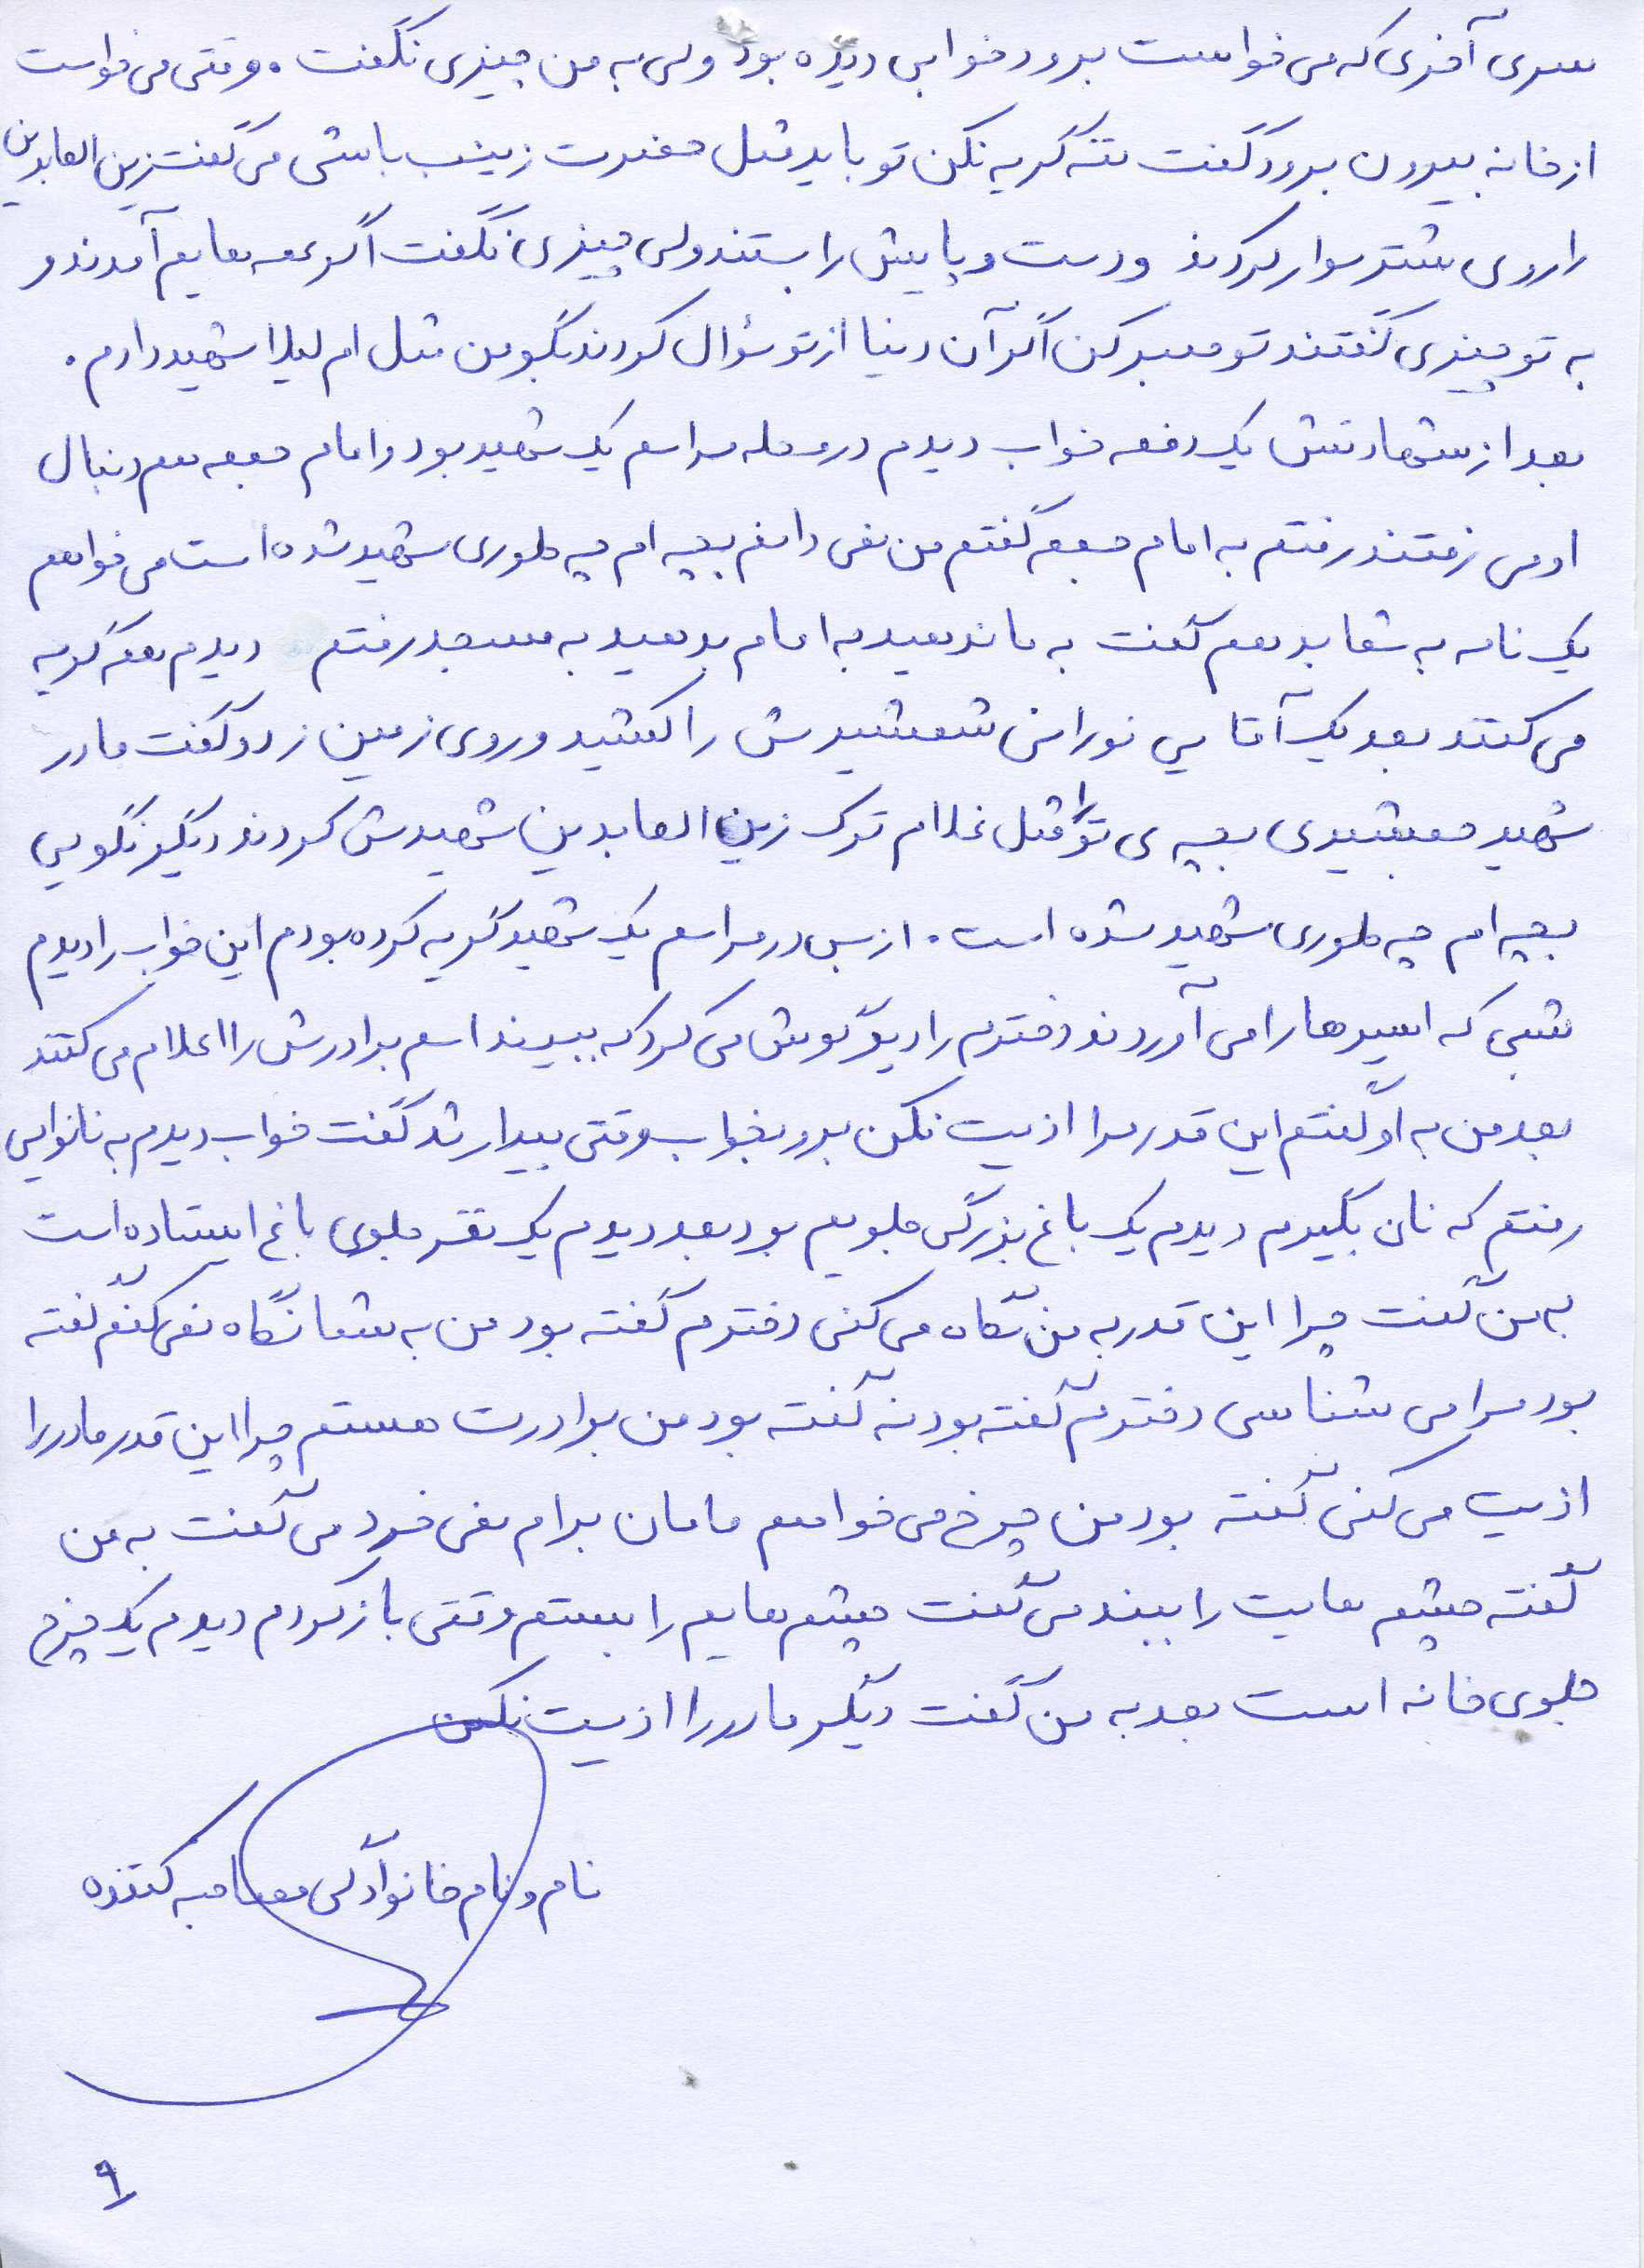 سری آخری که می خواست برود خوابی دیده بود ولی به من چیزی نگفت. وقتی می خواست
از خانه بیرون برود گفت ننه گریه نکن تو باید مثل حضرت زینب باشی می گفت زین العابدین
را روی شتر سوار کردند و دست و پایش را بستند ولی چیزی نگفت اگر همه هایم آمدند و
به تو چیزی گفتند تو صبر کن اگر آن دنیا از تو سؤال کردند بگو من مثل ام لیلا شهید دادم.
بعد از شهادتش یک دفعه خواب دیدم در محله مراسم یک شهید بود و امام جمعه هم دنبال
او می رفتند رفتم به امام جمعه گفتم من نمی دانم بچه ام چه طوری شهید شده است می خواهم
یک نامه به شما بدهم گفت به ما ندهید به امام بدهید به مسجد رفتم دیدم همه گریه
می کنند بعد یک آقایی نورانی شمشیرش را کشید و روی زمین زد و گفت مادر
شهید جمشیدی بچه ی تو را مثل غلام ترک زین العابدین شهیدش کردند دیگر نگویی
بچه ام چه طوری شهید شده است. از بس در مراسم یک شهید گریه کرده بودم این خواب را دیدم
شبی که اسیرها را می آوردند دخترم رادیو گوش می کرد که ببیند اسم برادرش را اعلام می کنند
بعد من به او گفتم این قدر مرا اذیت نکن برو بخواب وقتی بیدار شد گفت خواب دیدم به نانوایی
رفتم که نان بگیرم دیدم یک باغ بزرگی جلویم بود بعد دیدم یک نفر جلوی باغ ایستاده است
به من گفت چرا این قدر به من نگاه می کنی دخترم گفته بود من به شما نگاه نمی کنم گفته
بود مرا می شناسی دخترم گفته بود نه گفته بود من برادرت هستم چرا این قدر مادر را
اذیت می کنی گفته بود من چرخ می خواهم مامان برام نمی خرد می گفت به من
گفته چشم هایت را ببند می گفت چشم هایم را بستم وقتی باز کردم دیدم یک چرخ
جلوی خانه است بعد به من گفت دیگر مادر را اذیت نکن
نام و نام خانوادگی مصاحبه کننده
۹